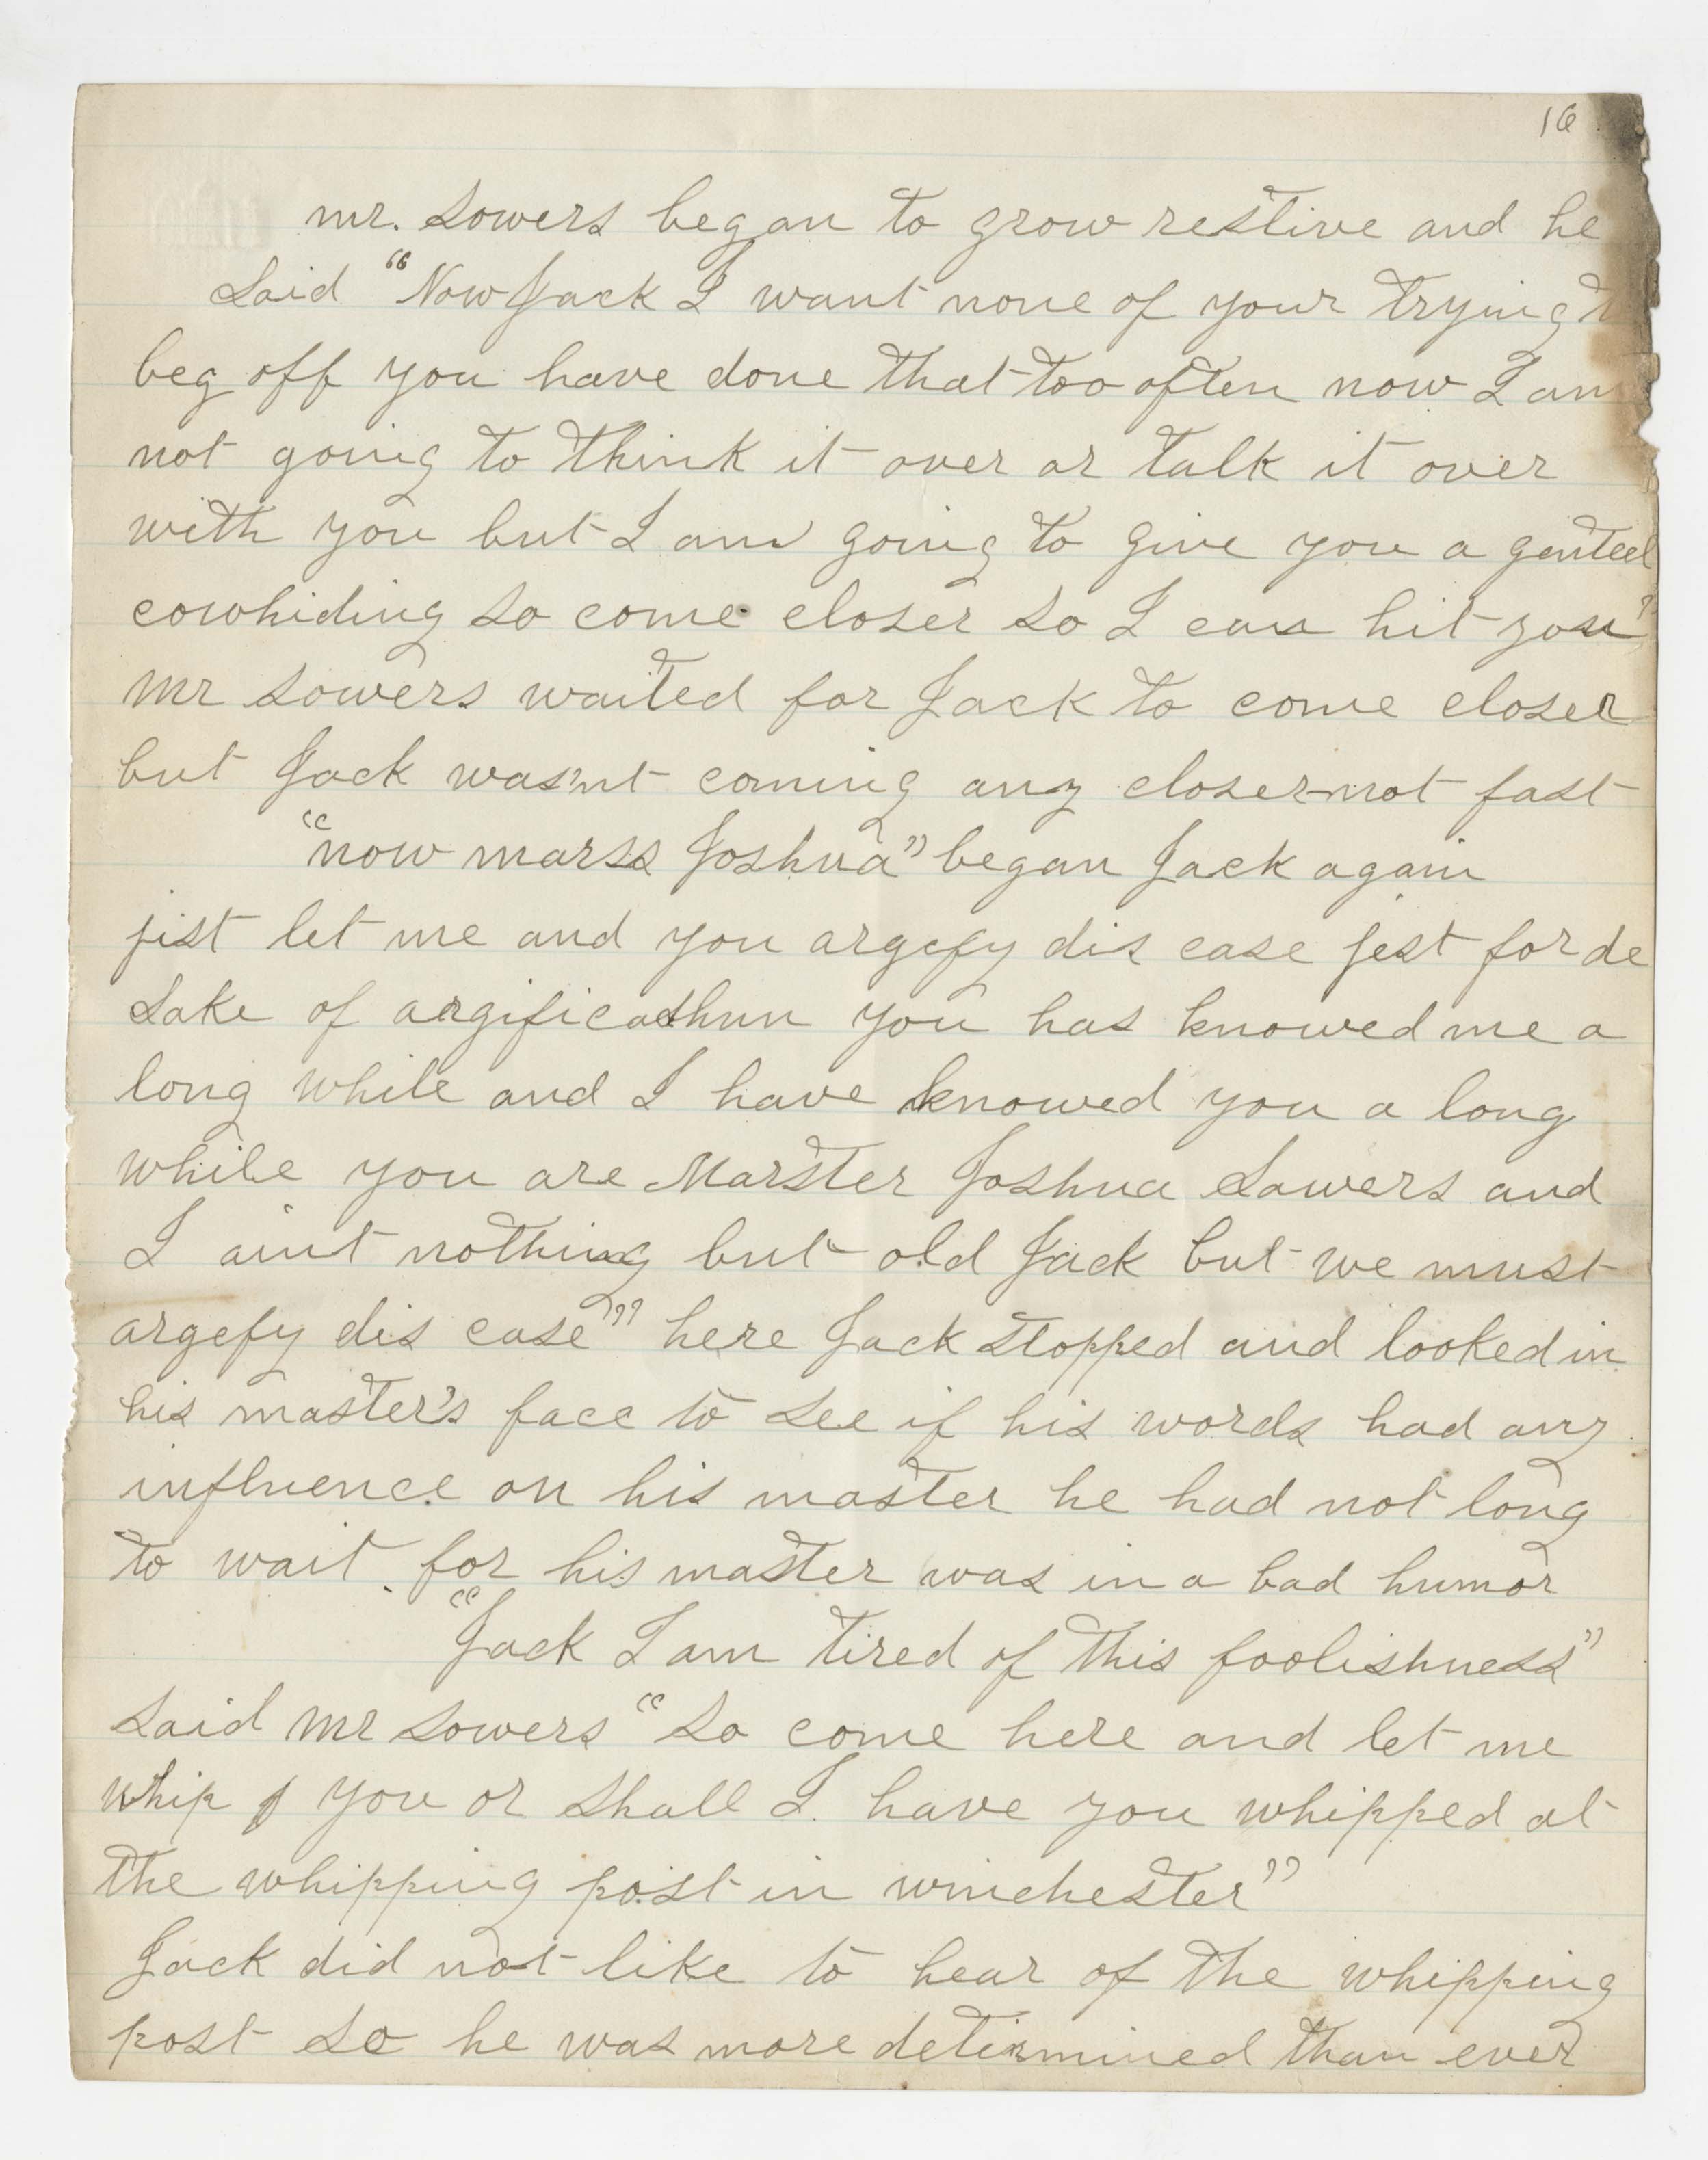 16
mr. Sowers began to grow restive and he
said "Now Jack I want none of your trying t
beg off you have done that too often now I am
not going to think it over or talk it over
with you but I am going to give you a genteel
cowhiding so come closer so I can hit you"
Mr Sowers waited for Jack to come closer
but Jack was'nt coming any closer not fast
"now marss Joshua" began Jack again
jist let me and you argefy dis case jest for de
sake of argificashun you has knowed me a
long while and I have knowed you a long
while you are Marster Joshua Sowers and
I aint nothing but old Jack but we must
argefy dis case" here Jack stopped and looked in
his master's face to see if his words had any
influence on his master he had not long
to wait for his master was in a bad humor
"Jack I am tired of this foolishness"
said Mr Sowers "so come here and let me
whip you or shall I have you whipped at
the whipping post in winchester"
Jack did not like to hear of the whipping
post so he was more determined than ever